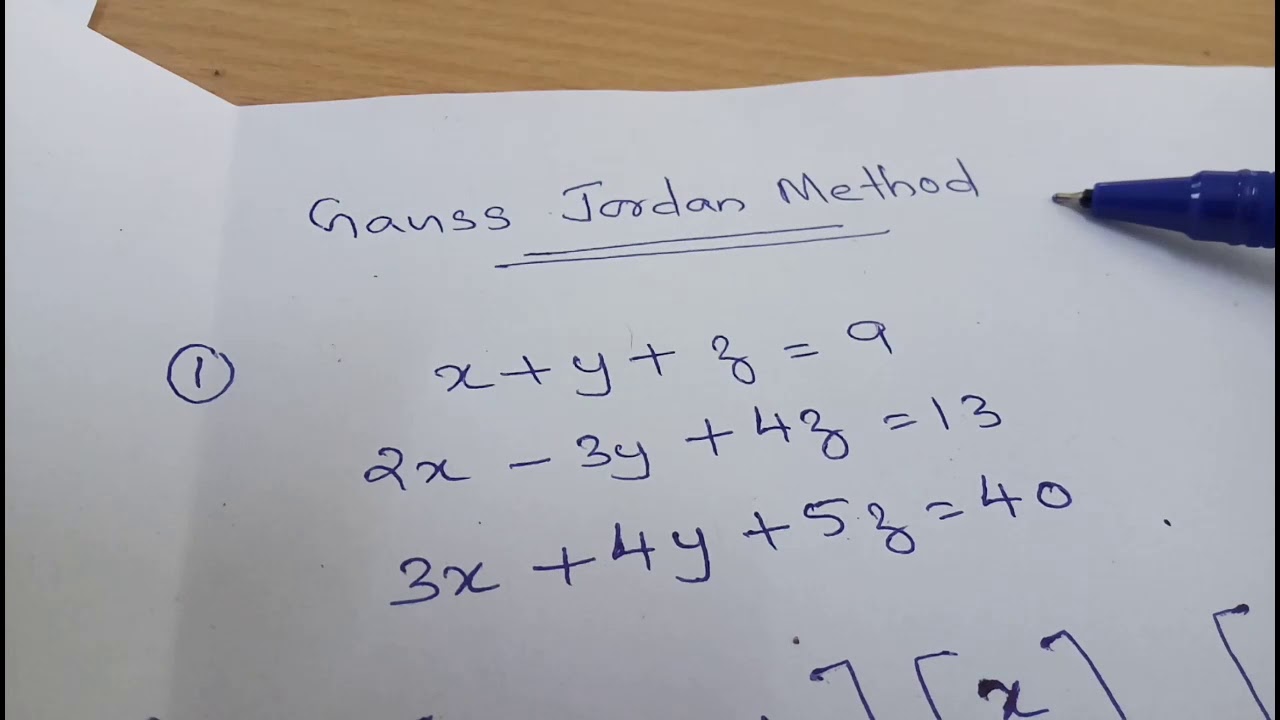 Gauss Jordan Method
① x + y + z = 9
2x - 3y + 4z = 13
3x + 4y + 5z = 40
] [ x ] [